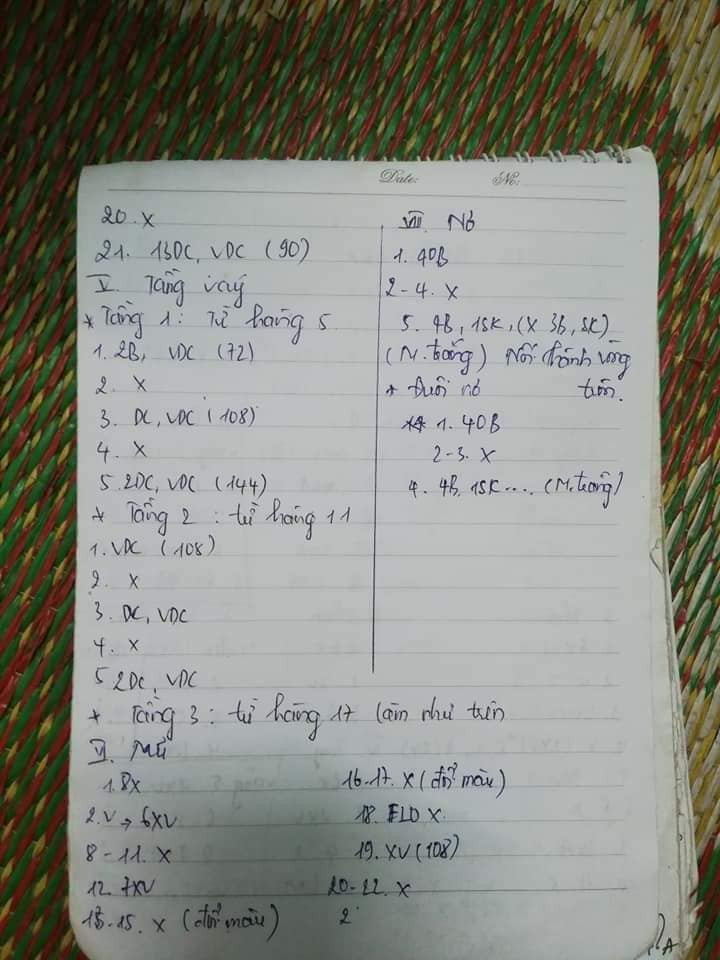 Date:
No:
20. X
21. 13DC, VDC (90)
V. Tầng váy
* Tầng 1: Từ hàng 5
1. 2B, VDC (72)
2. X
3. DC, VDC (108)
4. X
5. 2DC, VDC (144)
* Tầng 2: từ hàng 11
1. VDC (108)
2. X
3. DC, VDC
4. X
5 2DC, VDC
* Tầng 3: từ hàng 17 làm như trên
VI. Mũ
1. 8X
2. V → 6XV
8-11. X
12. 7XV
13-15. X (đổi màu)
16-17. X (đổi màu)
18. FLO X.
19. XV (108)
20-22. X
2
VII. Nơ
1. 40B
2-4. X
5. 4B, 1SK, (X 3B, SK)
(M.trắng) Nối thành vòng
tròn.
* Đuôi nơ
1. 40B
2-3. X
4. 4B, 1SK.... (M.trắng)